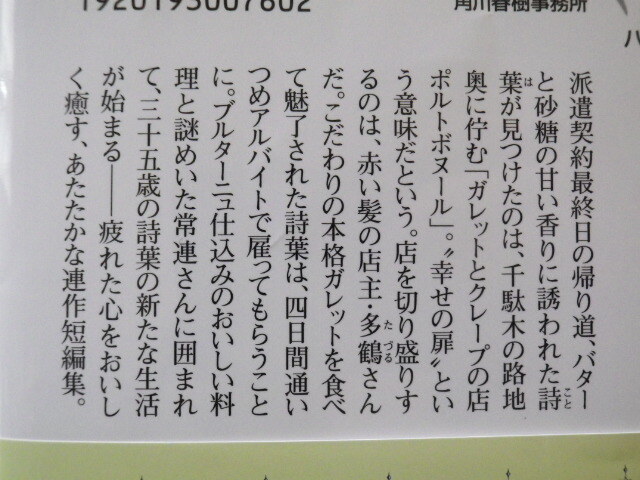 1920193007602
角川春樹事務所
ハ
派遣契約最終日の帰り道、バター
と砂糖の甘い香りに誘われた詩
葉が見つけたのは、千駄木の路地
奥に佇む「ガレットとクレープの店
ポルトボヌール」。〝幸せの扉〟とい
う意味だという。店を切り盛りす
るのは、赤い髪の店主・多鶴さん
だ。こだわりの本格ガレットを食べ
て魅了された詩葉は、四日間通い
つめアルバイトで雇ってもらうこと
に。ブルターニュ仕込みのおいしい料
理と謎めいた常連さんに囲まれ
て、三十五歳の詩葉の新たな生活
が始まる――疲れた心をおいし
く癒す、あたたかな連作短編集。